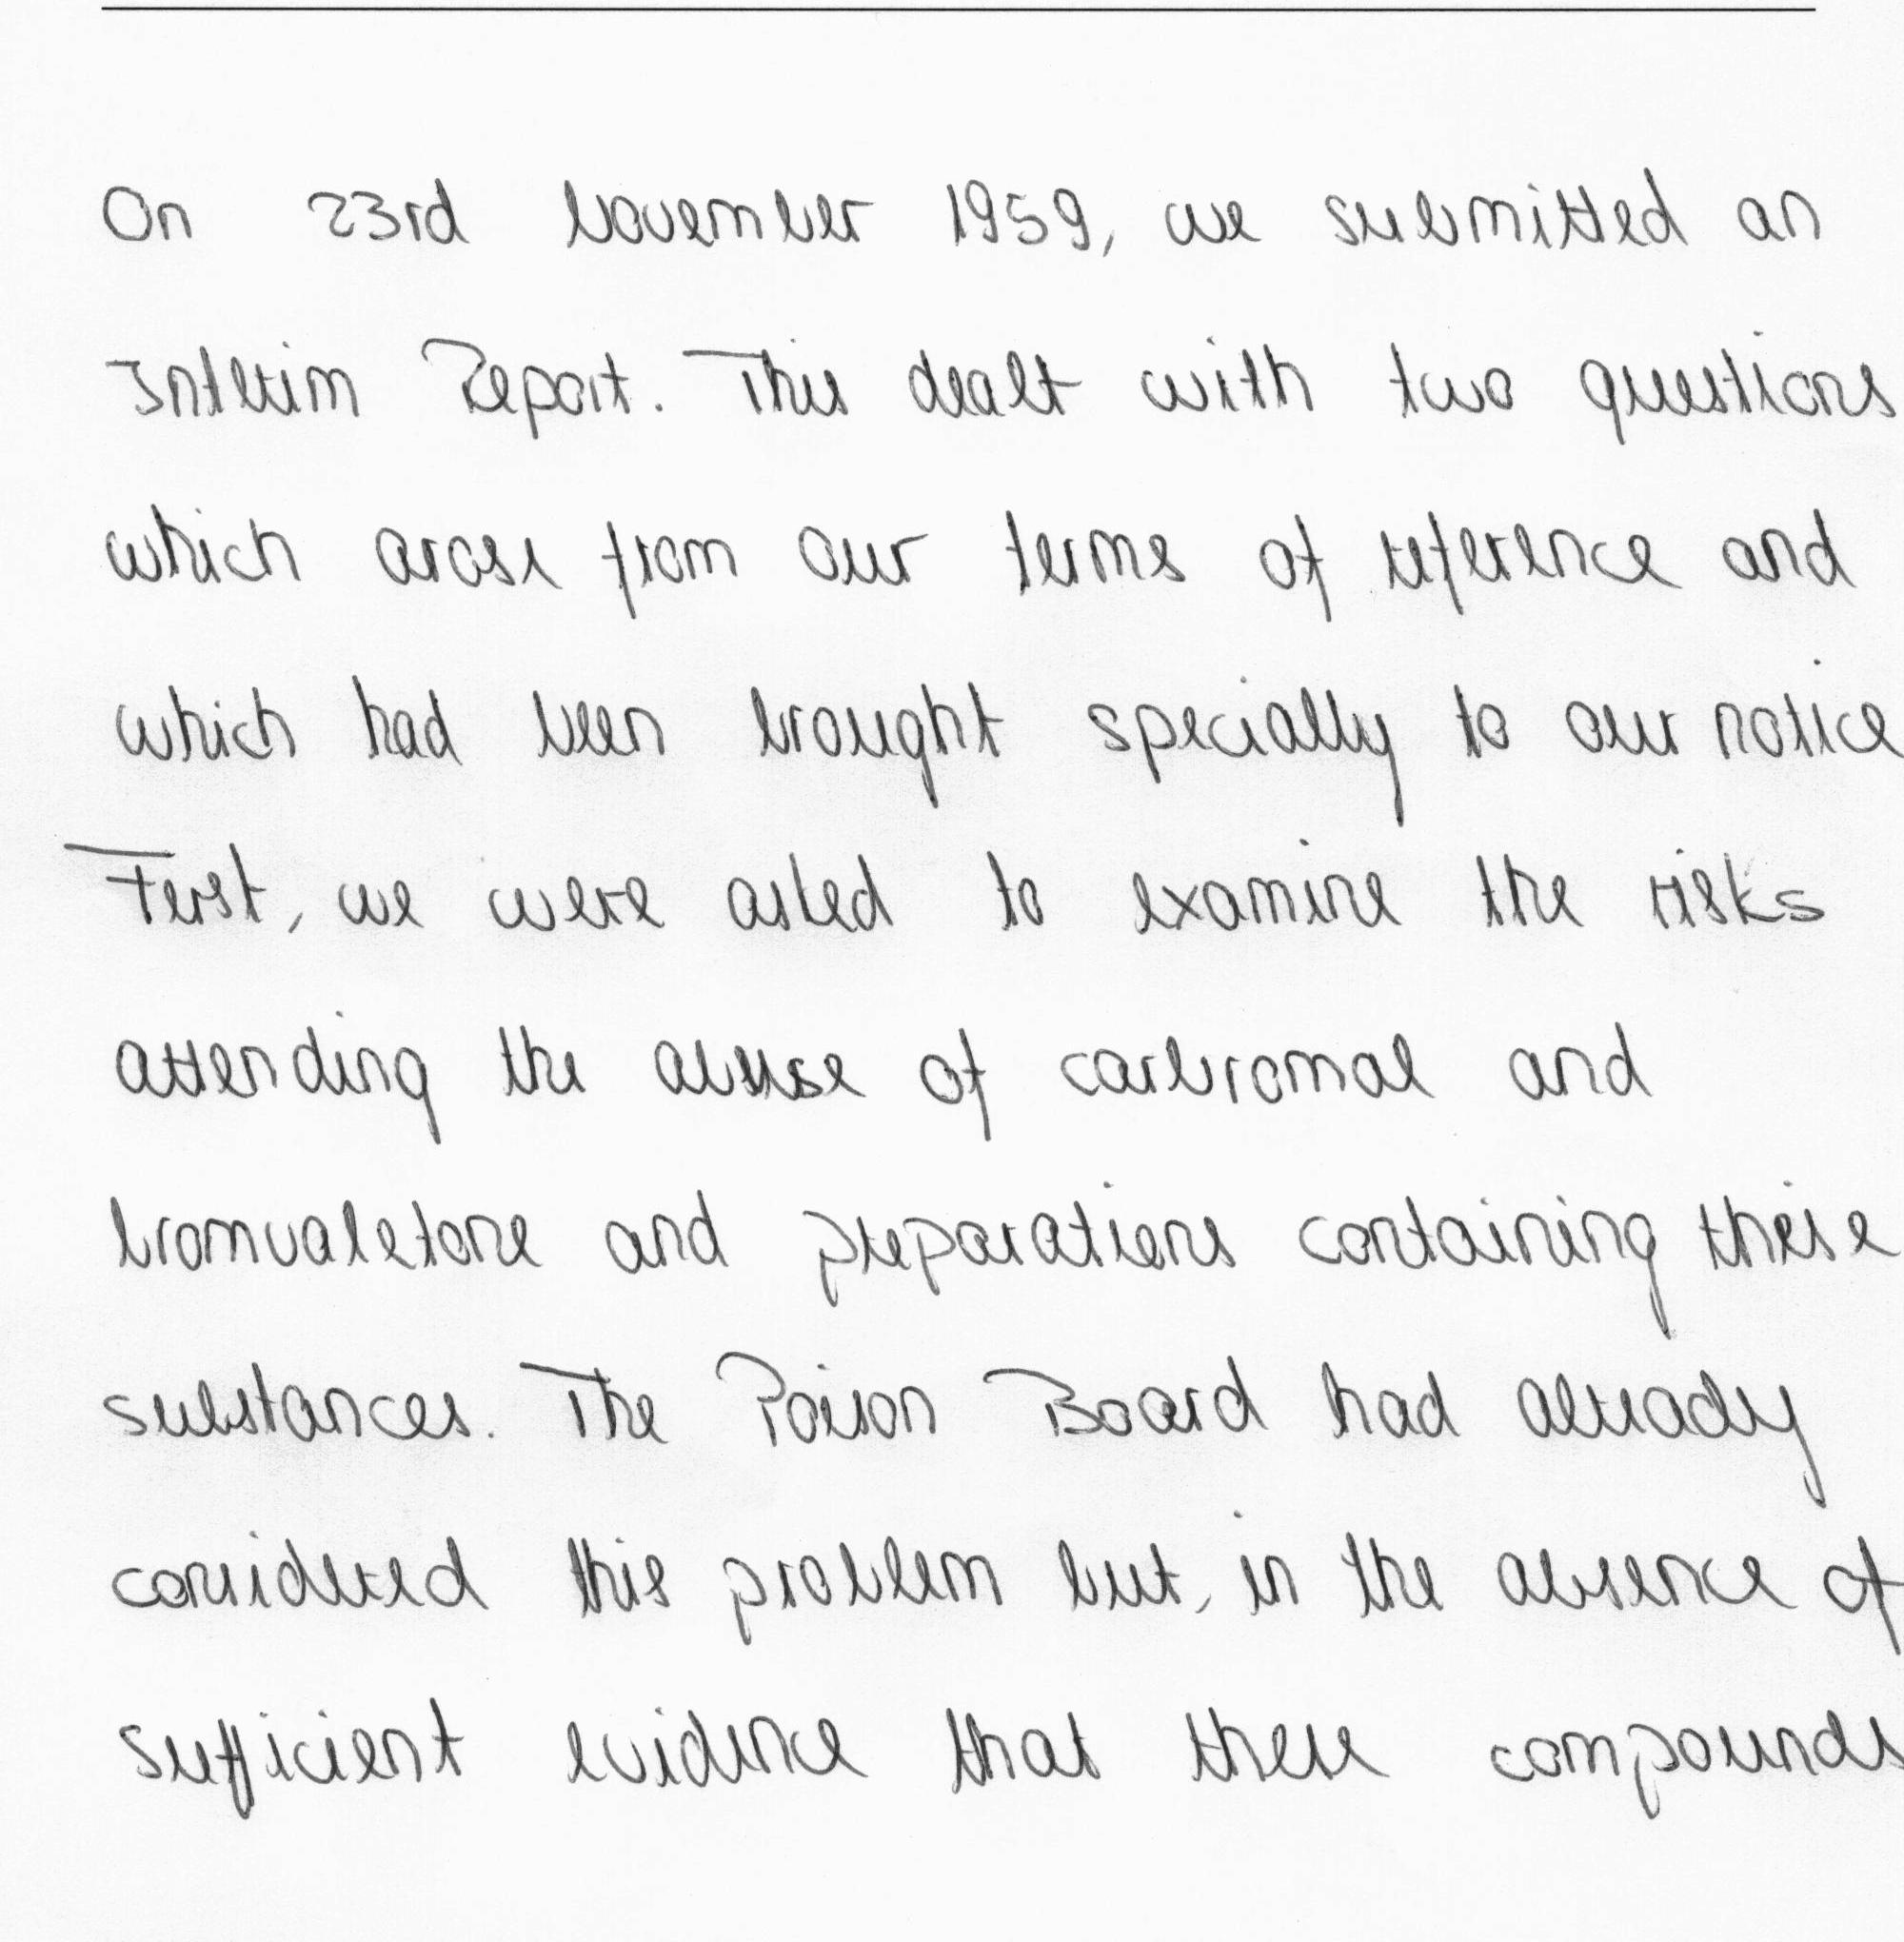 On 23rd November 1959, we submitted an
Interim Report. This dealt with two questions
which arose from our terms of reference and
which had been brought specially to our notice
First, we were asked to examine the risks
attending the abuse of carbromal and
bromvaletone and preparations containing these
substances. The Poison Board had already
considered this problem but, in the absence of
sufficient evidence that these compounds